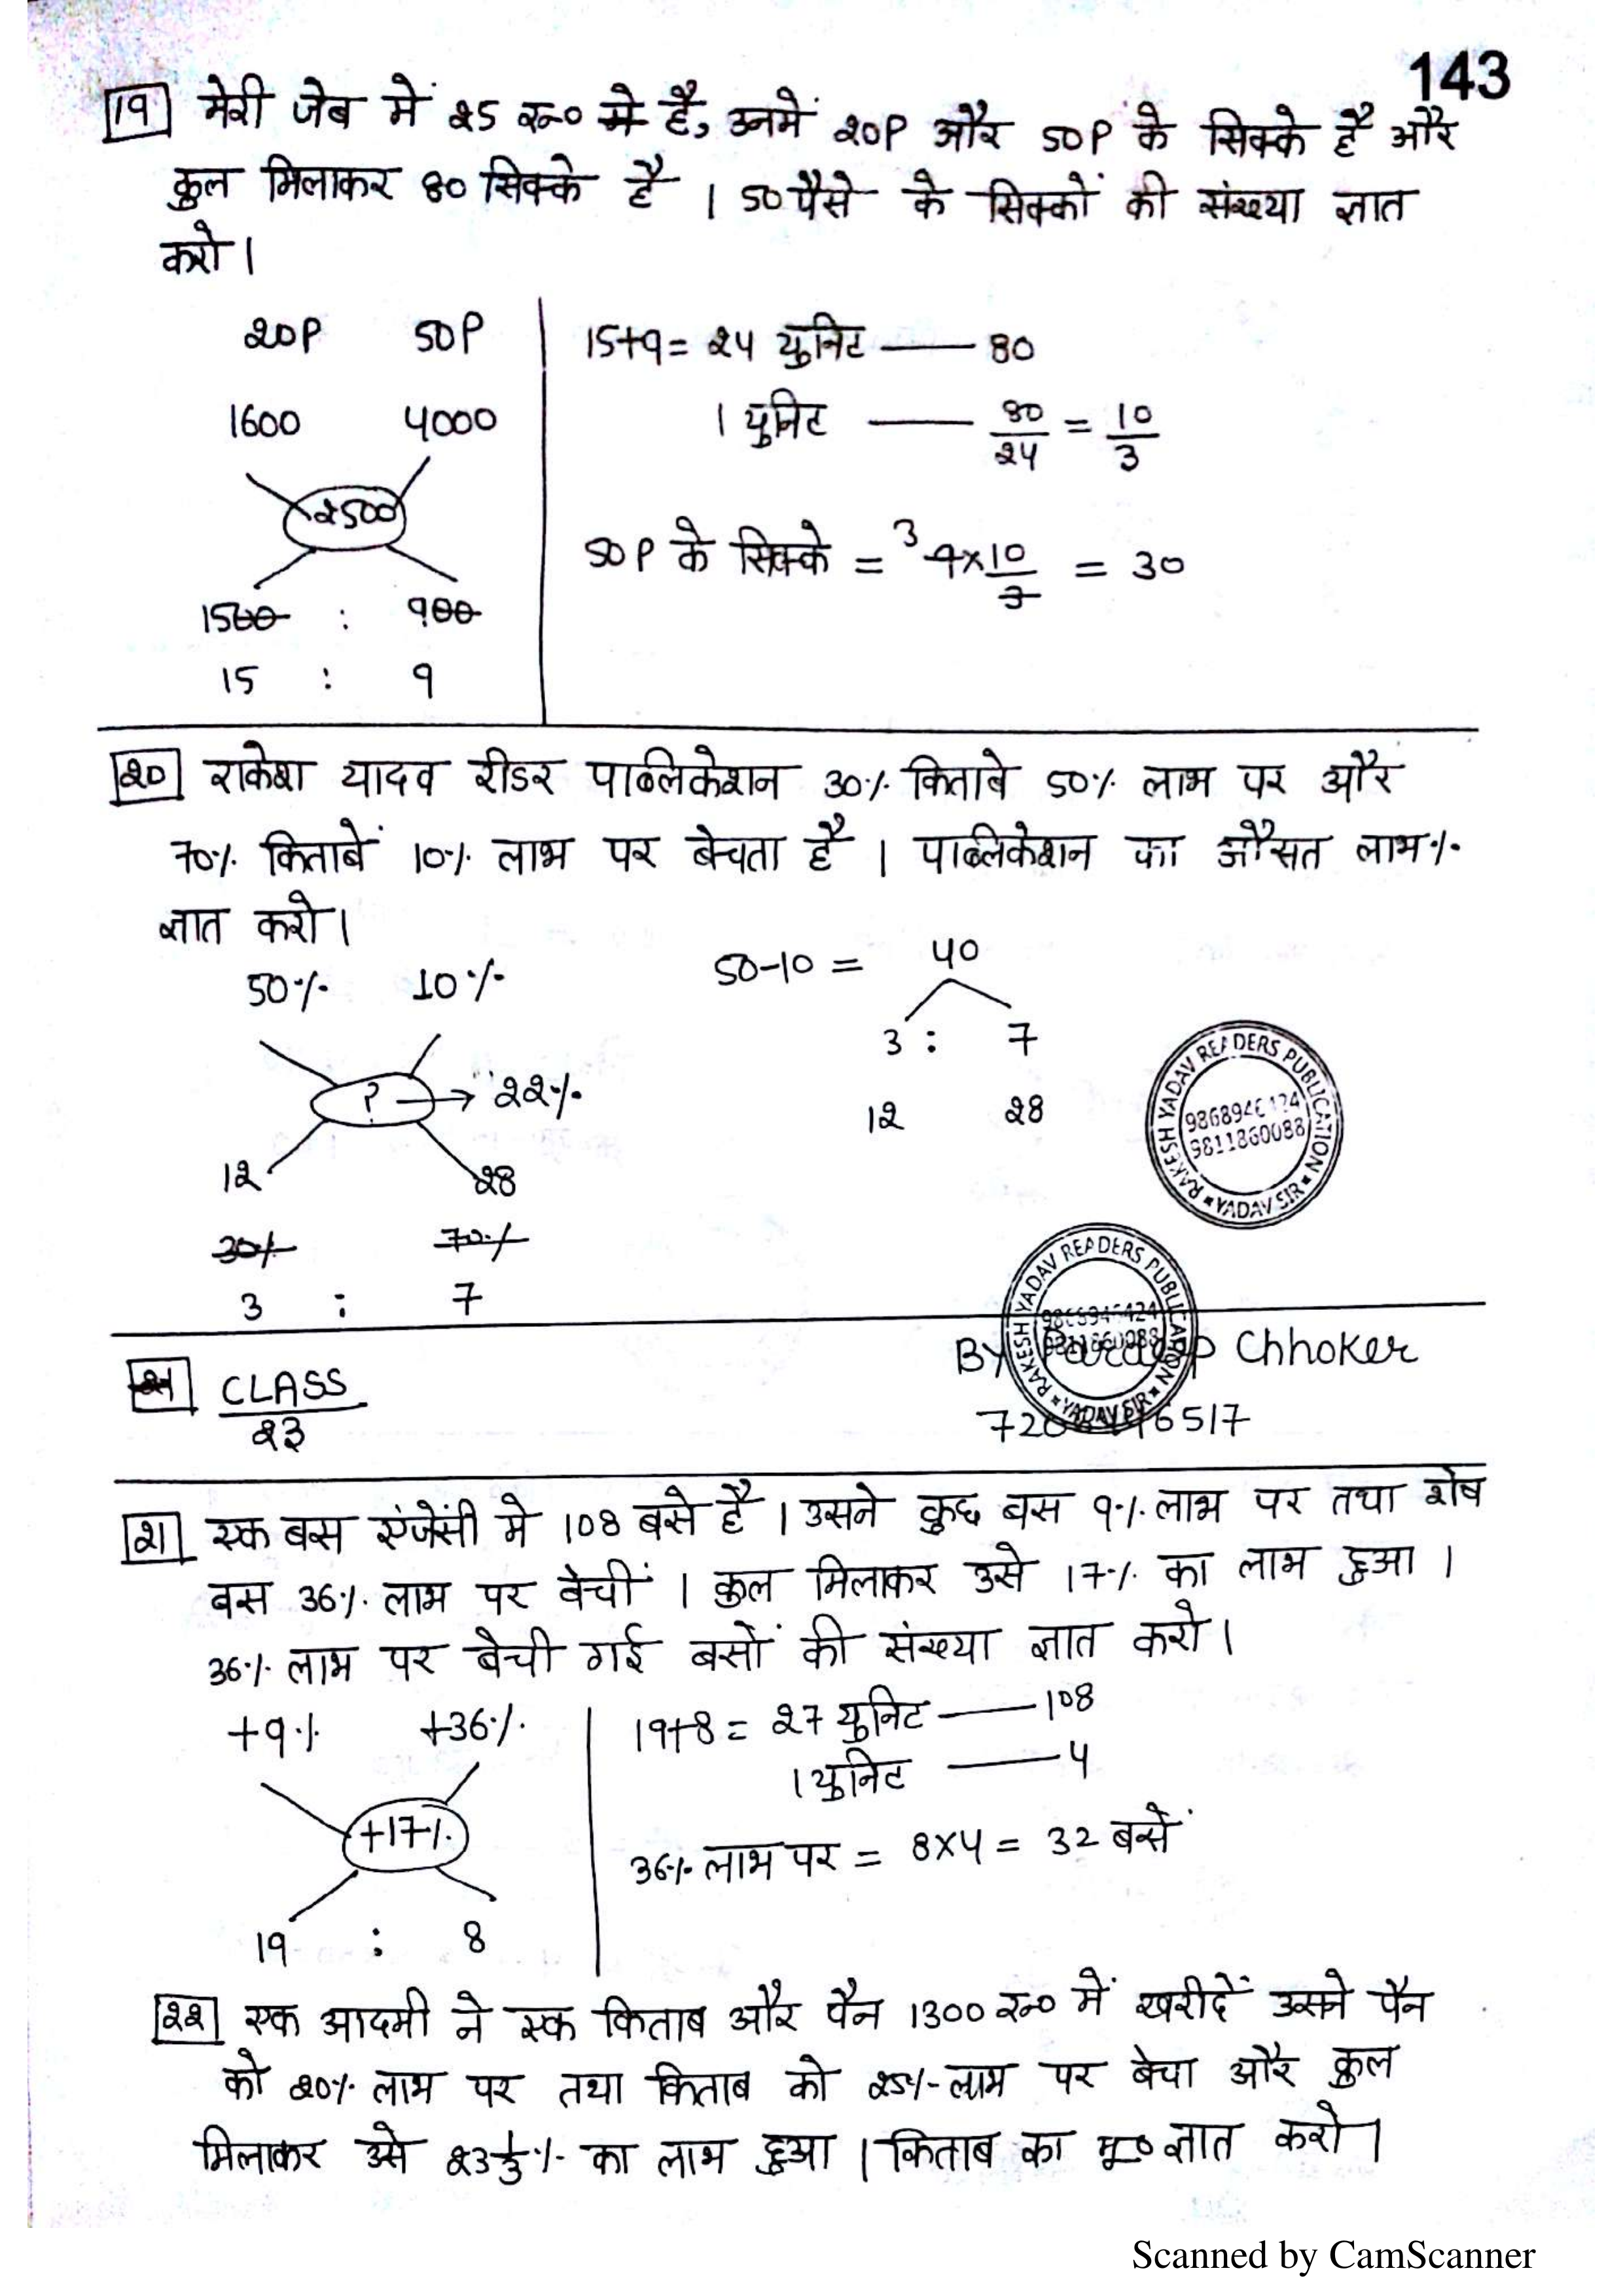 143
19 मेरी जेब में 25 रू० मे है, उनमें 20P और 50P के सिक्के है और
कुल मिलाकर 80 सिक्के है । 50 पैसे के सिक्कों की संख्या ज्ञात
करो ।
20P 50P
1600 4000
2500
1500 : 900
15 : 9
15+9 = 24 युनिट — 80
1 युनिट — 80/24 = 10/3
50P के सिक्के = 3 9×10/3 = 30
20 राकेश यादव रीडर पाब्लिकेशन 30% किताबे 50% लाभ पर और
70% किताबें 10% लाभ पर बेचता है । पाब्लिकेशन का औसत लाभ%
ज्ञात करो ।
50% 10%
? → 22%
12 28
30% 70%
3 : 7
50-10 = 40
3 : 7
12 28
RAKESH YADAV READERS PUBLICATION
YADAV SIR
9811860088
RAKESH YADAV READERS PUBLICATION
YADAV SIR
BY Chhoker
CLASS
23
21 एक बस एंजेंसी मे 108 बसे है । उसने कुछ बस 9% लाभ पर तथा शेष
बस 36% लाभ पर बेचीं । कुल मिलाकर उसे 17% का लाभ हुआ ।
36% लाभ पर बेची गई बसों की संख्या ज्ञात करो ।
+9% +36%
+17%
19 : 8
19+8 = 27 युनिट — 108
1 युनिट — 4
36% लाभ पर = 8×4 = 32 बसें
22 एक आदमी ने एक किताब और पैन 1300 रू० में खरीदें उसने पैन
को 20% लाभ पर तथा किताब को 25% लाभ पर बेचा और कुल
मिलाकर उसे 23 1/3 % का लाभ हुआ । किताब का मू० ज्ञात करो ।
Scanned by CamScanner